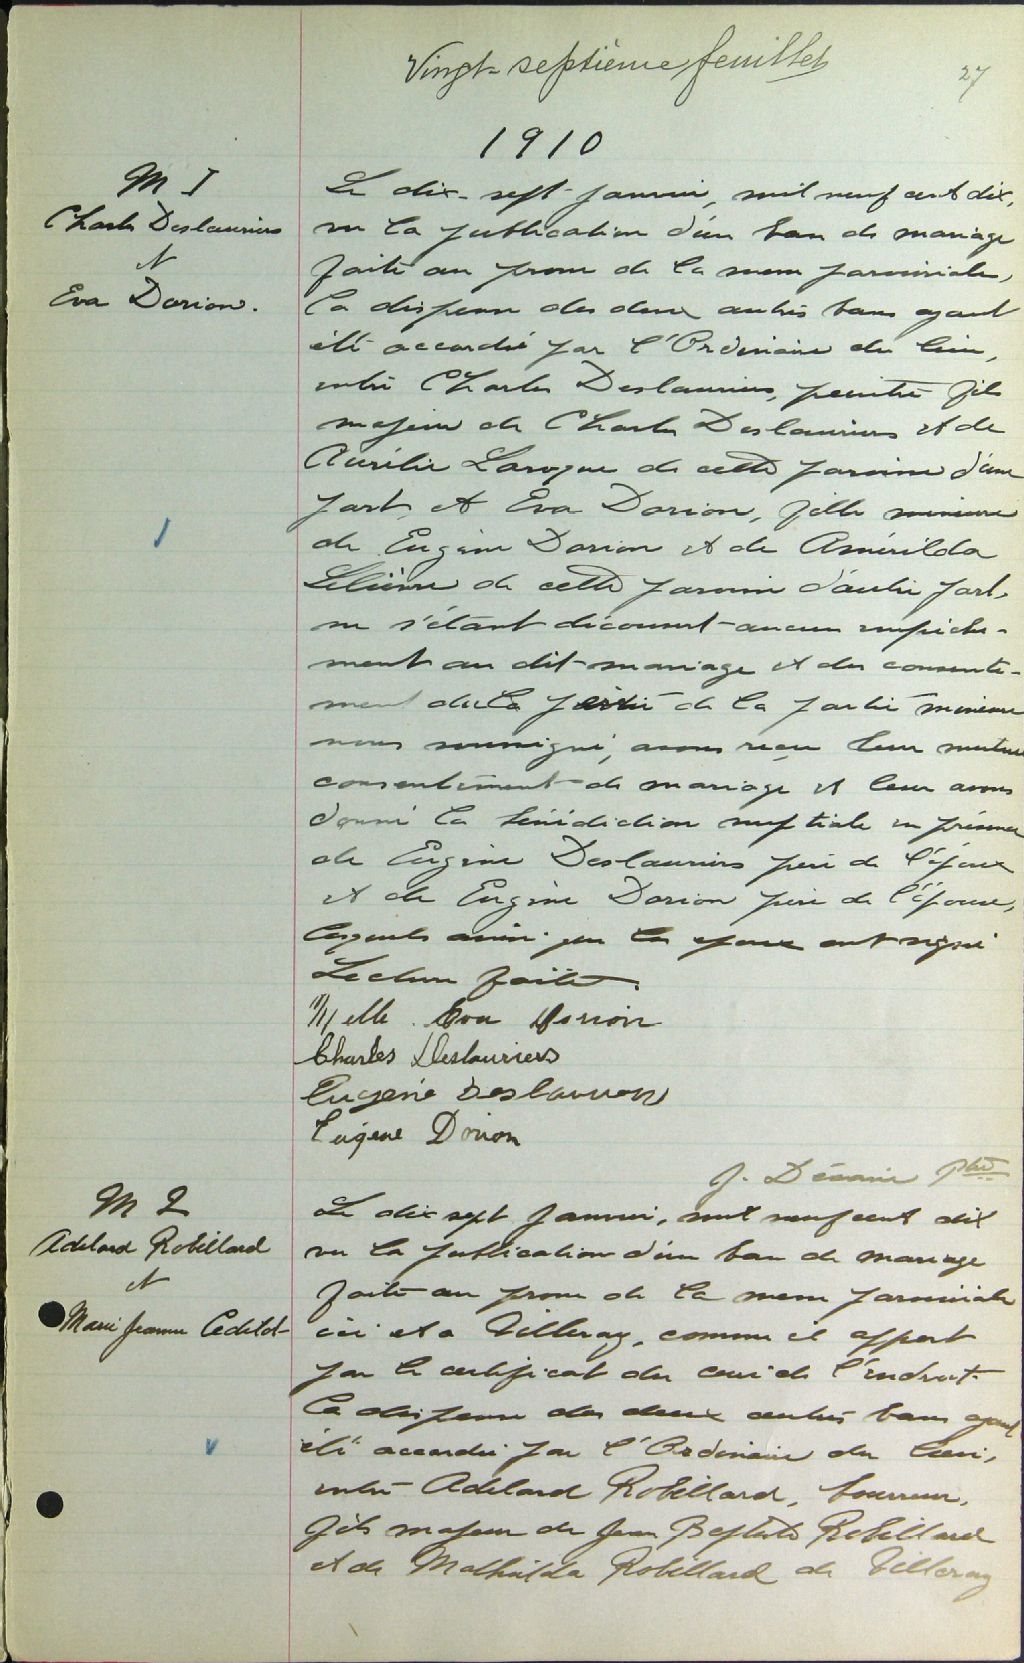 Vingt-septième feuillet
27
1910
M I
Charles Deslauriers
et
Eva Dorion.
Le dix-sept janvier, mil neuf cent dix,
vu la publication d'un ban de mariage
faite au prone de la messe paroissiale,
la dispense des deux autres bans ayant
été accordée par l'Ordinaire du lieu,
entre Charles Deslauriers, peintre fils
majeur de Charles Deslauriers et de
Aurélie Laroque de cette paroisse d'une
part, et Eva Dorion, fille mineure
de Eugène Dorion et de Amérilda
de cette paroisse d'autre part,
ne s'étant découvert aucun empêche-
ment au dit mariage et du consente-
ment de la de la partie mineure
nous soussigné, avons reçu leur mutuel
consentement de mariage et leur avons
donné la bénédiction nuptiale en présence
de Eugène Deslauriers père de l'époux
et de Eugène Dorion père de l'épouse,
lesquels ainsi que les époux ont signé
Lecture faite.
Melle Eva Dorion
Charles Deslauriers
Eugène Deslauriers
Eugène Dorion
J. Décarie Ptre
M 2
Adelard Robillard
et
Marie Jeanne
Le dix sept janvier, mil neuf cent dix
vu la publication d'un ban de mariage
faite au prone de la messe paroissiale
ici et a Villeray, comme il appert
par le certificat du curé de l'endroit.
La dispense des deux autres bans ayant
été accordée par l'Ordinaire du lieu,
entre Adelard Robillard,
fils majeur de Jean Baptiste Robillard
et de Mathilda Robillard de Villeray